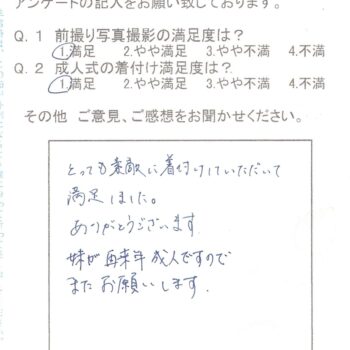 アンケートの記入をお願い致しております。
Q.1 前撮り写真撮影の満足度は?
1.満足 2.やや満足 3.やや不満 4.不満
Q.2 成人式の着付け満足度は?
1.満足 2.やや満足 3.やや不満 4.不満
その他 ご意見、ご感想をお聞かせください。
とっても素敵に着付けていただいて
満足しました。
ありがとうございます
妹が再来年成人ですので
またお願いします。